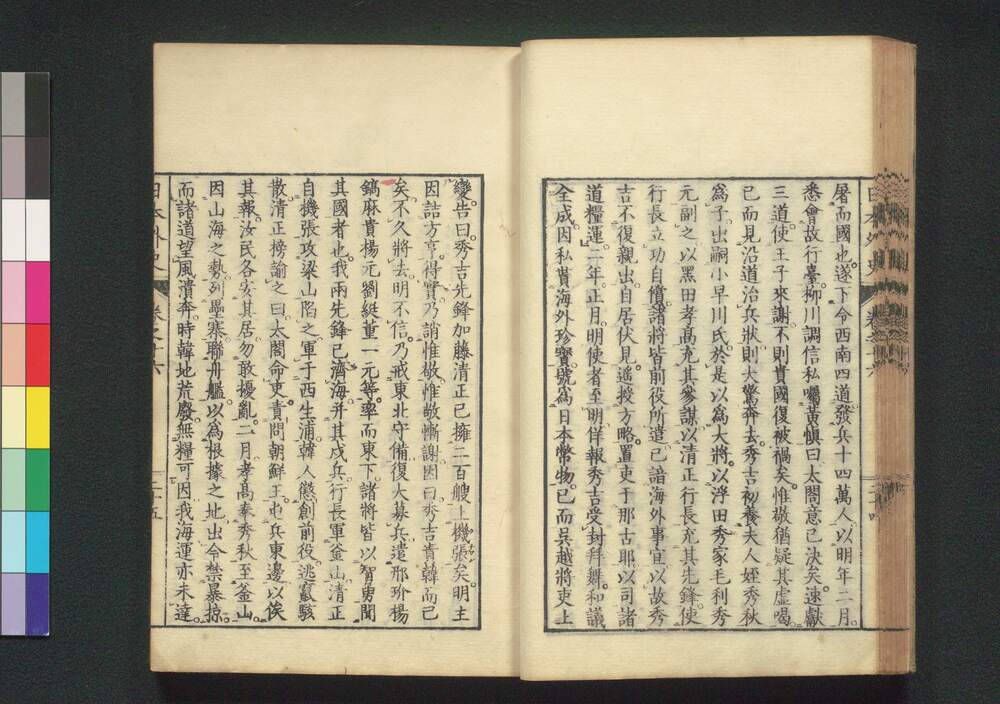 屠而國也。遂下令西南四道發兵十四萬人以明年二月
悉會故行臺。柳川調信私囑黃愼曰太閤意已決矣速獻
三道使王子來謝不則貴國復被禍矣惟敬猶疑其虛喝
已而見沿道治兵狀則大驚奔去秀吉初養夫人姪秀秋
爲子出嗣小早川氏於是以爲大將以浮田秀家毛利秀
元副之以黑田孝高充其參謀以清正行長充其先鋒使
行長立功自償諸將皆前役所遣已諳海外事宜以故秀
吉不復親出自居伏見遙授方略置吏于那古耶以司諸
道糧運二年正月明使者至明佯報秀吉受封拜舞和議
全成因私貢海外珍寶號爲日本幣物已而吳越將吏上
變告曰秀吉先鋒加藤清正已擁二百艘上機張矣明主
因詰方亨得實乃誚惟敬惟敬慚謝因曰秀吉責韓而已
矣不久將去明不信乃戒東北守備復大募兵遣邢玠楊
鎬麻貴楊元劉綎董一元等率而東下諸將皆以智勇聞
其國者也我兩先鋒已濟海并其戍兵行長軍釜山清正
自機張攻梁山陷之軍于西生浦韓人懲創前役逃竄駭
散清正榜諭之曰太閤命吏責問朝鮮王也兵東邊以俟
其報汝民各安其居勿敢擾亂二月孝高奉秀秋至釜山
因山海之勢列壘寨聯舟艦以爲根據之地出令禁暴掠
而諸道望風潰奔時韓地荒廢無糧可因我海運亦未達
日本外史 卷之十六 二十五